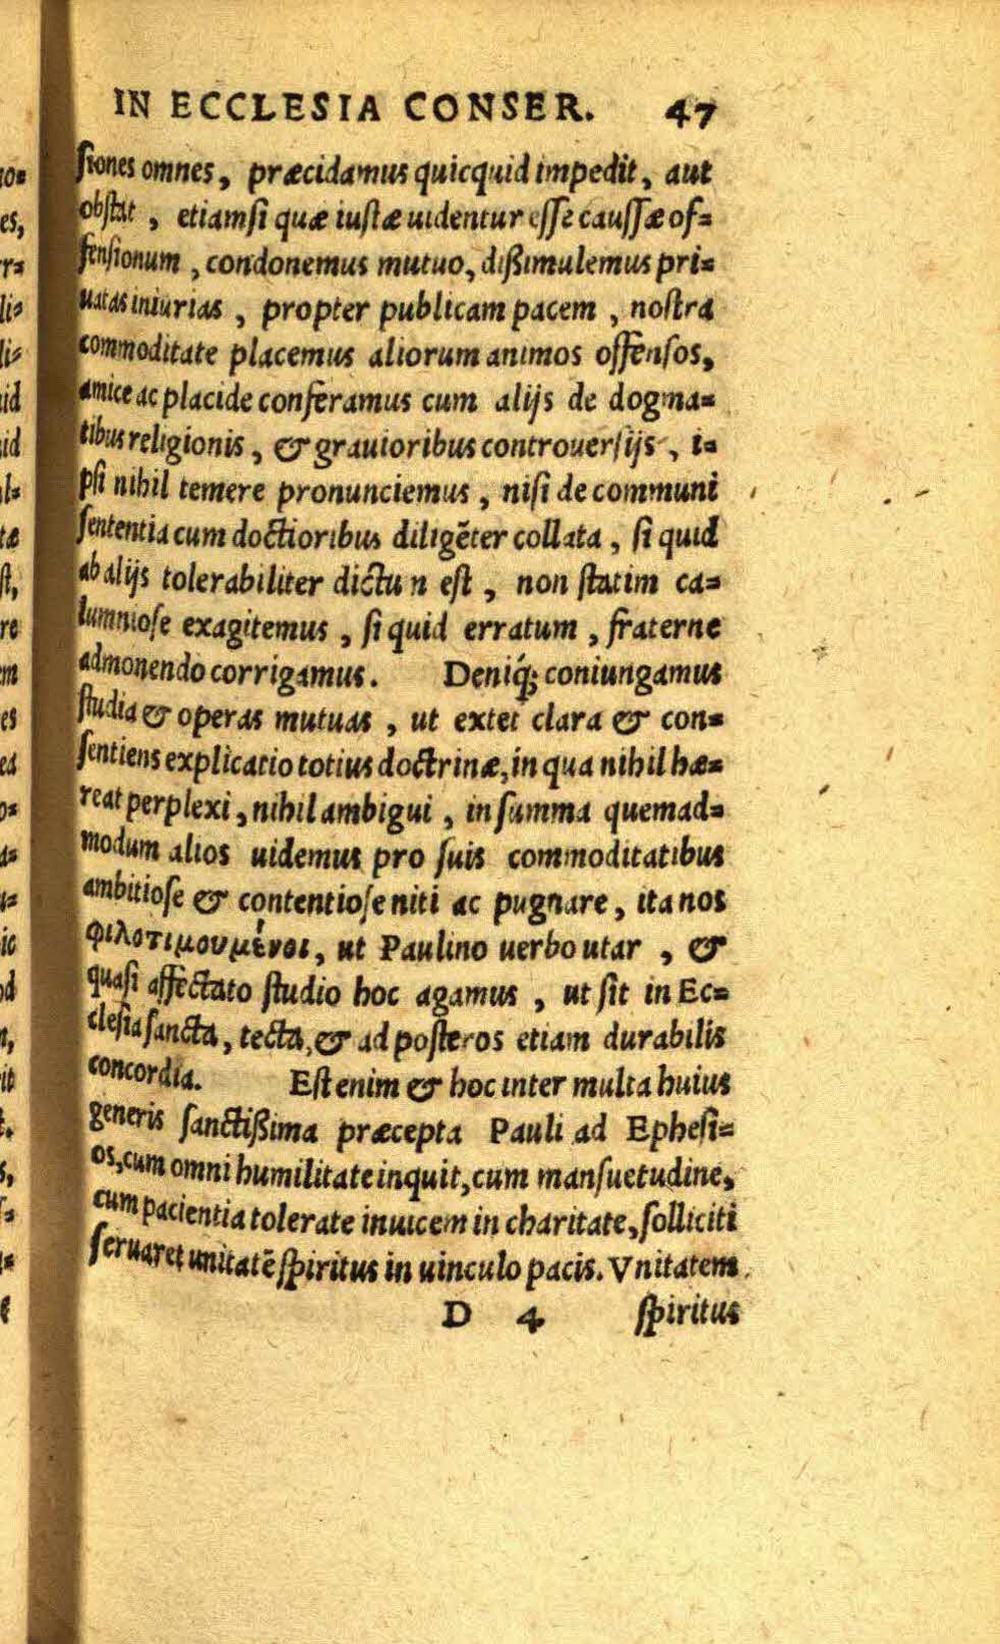 IN ECCLESIA CONSER. 47
ſiones omnes, præcidamus quicquid impedit, aut
obſtat, etiamſi quæ iuſtæ uidentur eſſe cauſſæ of=
fenſionum, condonemus mutuo, dißimulemus pri=
uatas iniurias, propter publicam pacem, noſtra
commoditate placemus aliorum animos offenſos,
amice ac placide conferamus cum alijs de dogma=
tibus religionis, & grauioribus controuerſijs, i=
pſi nihil temere pronunciemus, niſi de communi
ſententia cum doctioribus diligẽter collata, ſi quid
ab alijs tolerabiliter dictu n eſt, non ſtatim ca=
lumnioſe exagitemus, ſi quid erratum, fraterne
admonendo corrigamus. Deniq́; coniungamus
ſtudia & operas mutuas, ut extet clara & con=
ſentiens explicatio totius doctrinæ, in qua nihil hæ=
reat perplexi, nihil ambigui, in ſumma quemad=
modum alios uidemus pro ſuis commoditatibus
ambitioſe & contentioſe niti ac pugnare, ita nos
φιλοτιμουμένοι, ut Paulino uerbo utar, &
quaſi affectato ſtudio hoc agamus, ut ſit in Ec=
cleſia ſancta, tecta, & ad poſteros etiam durabilis
concordia. Eſt enim & hoc inter multa huius
generis ſanctißima præcepta Pauli ad Epheſi=
os, cum omni humilitate inquit, cum manſuetudine,
cum pacientia tolerate inuicem in charitate, ſolliciti
ſeruaret unitatẽ ſpiritus in uinculo pacis. Vnitatem
D 4 ſpiritus